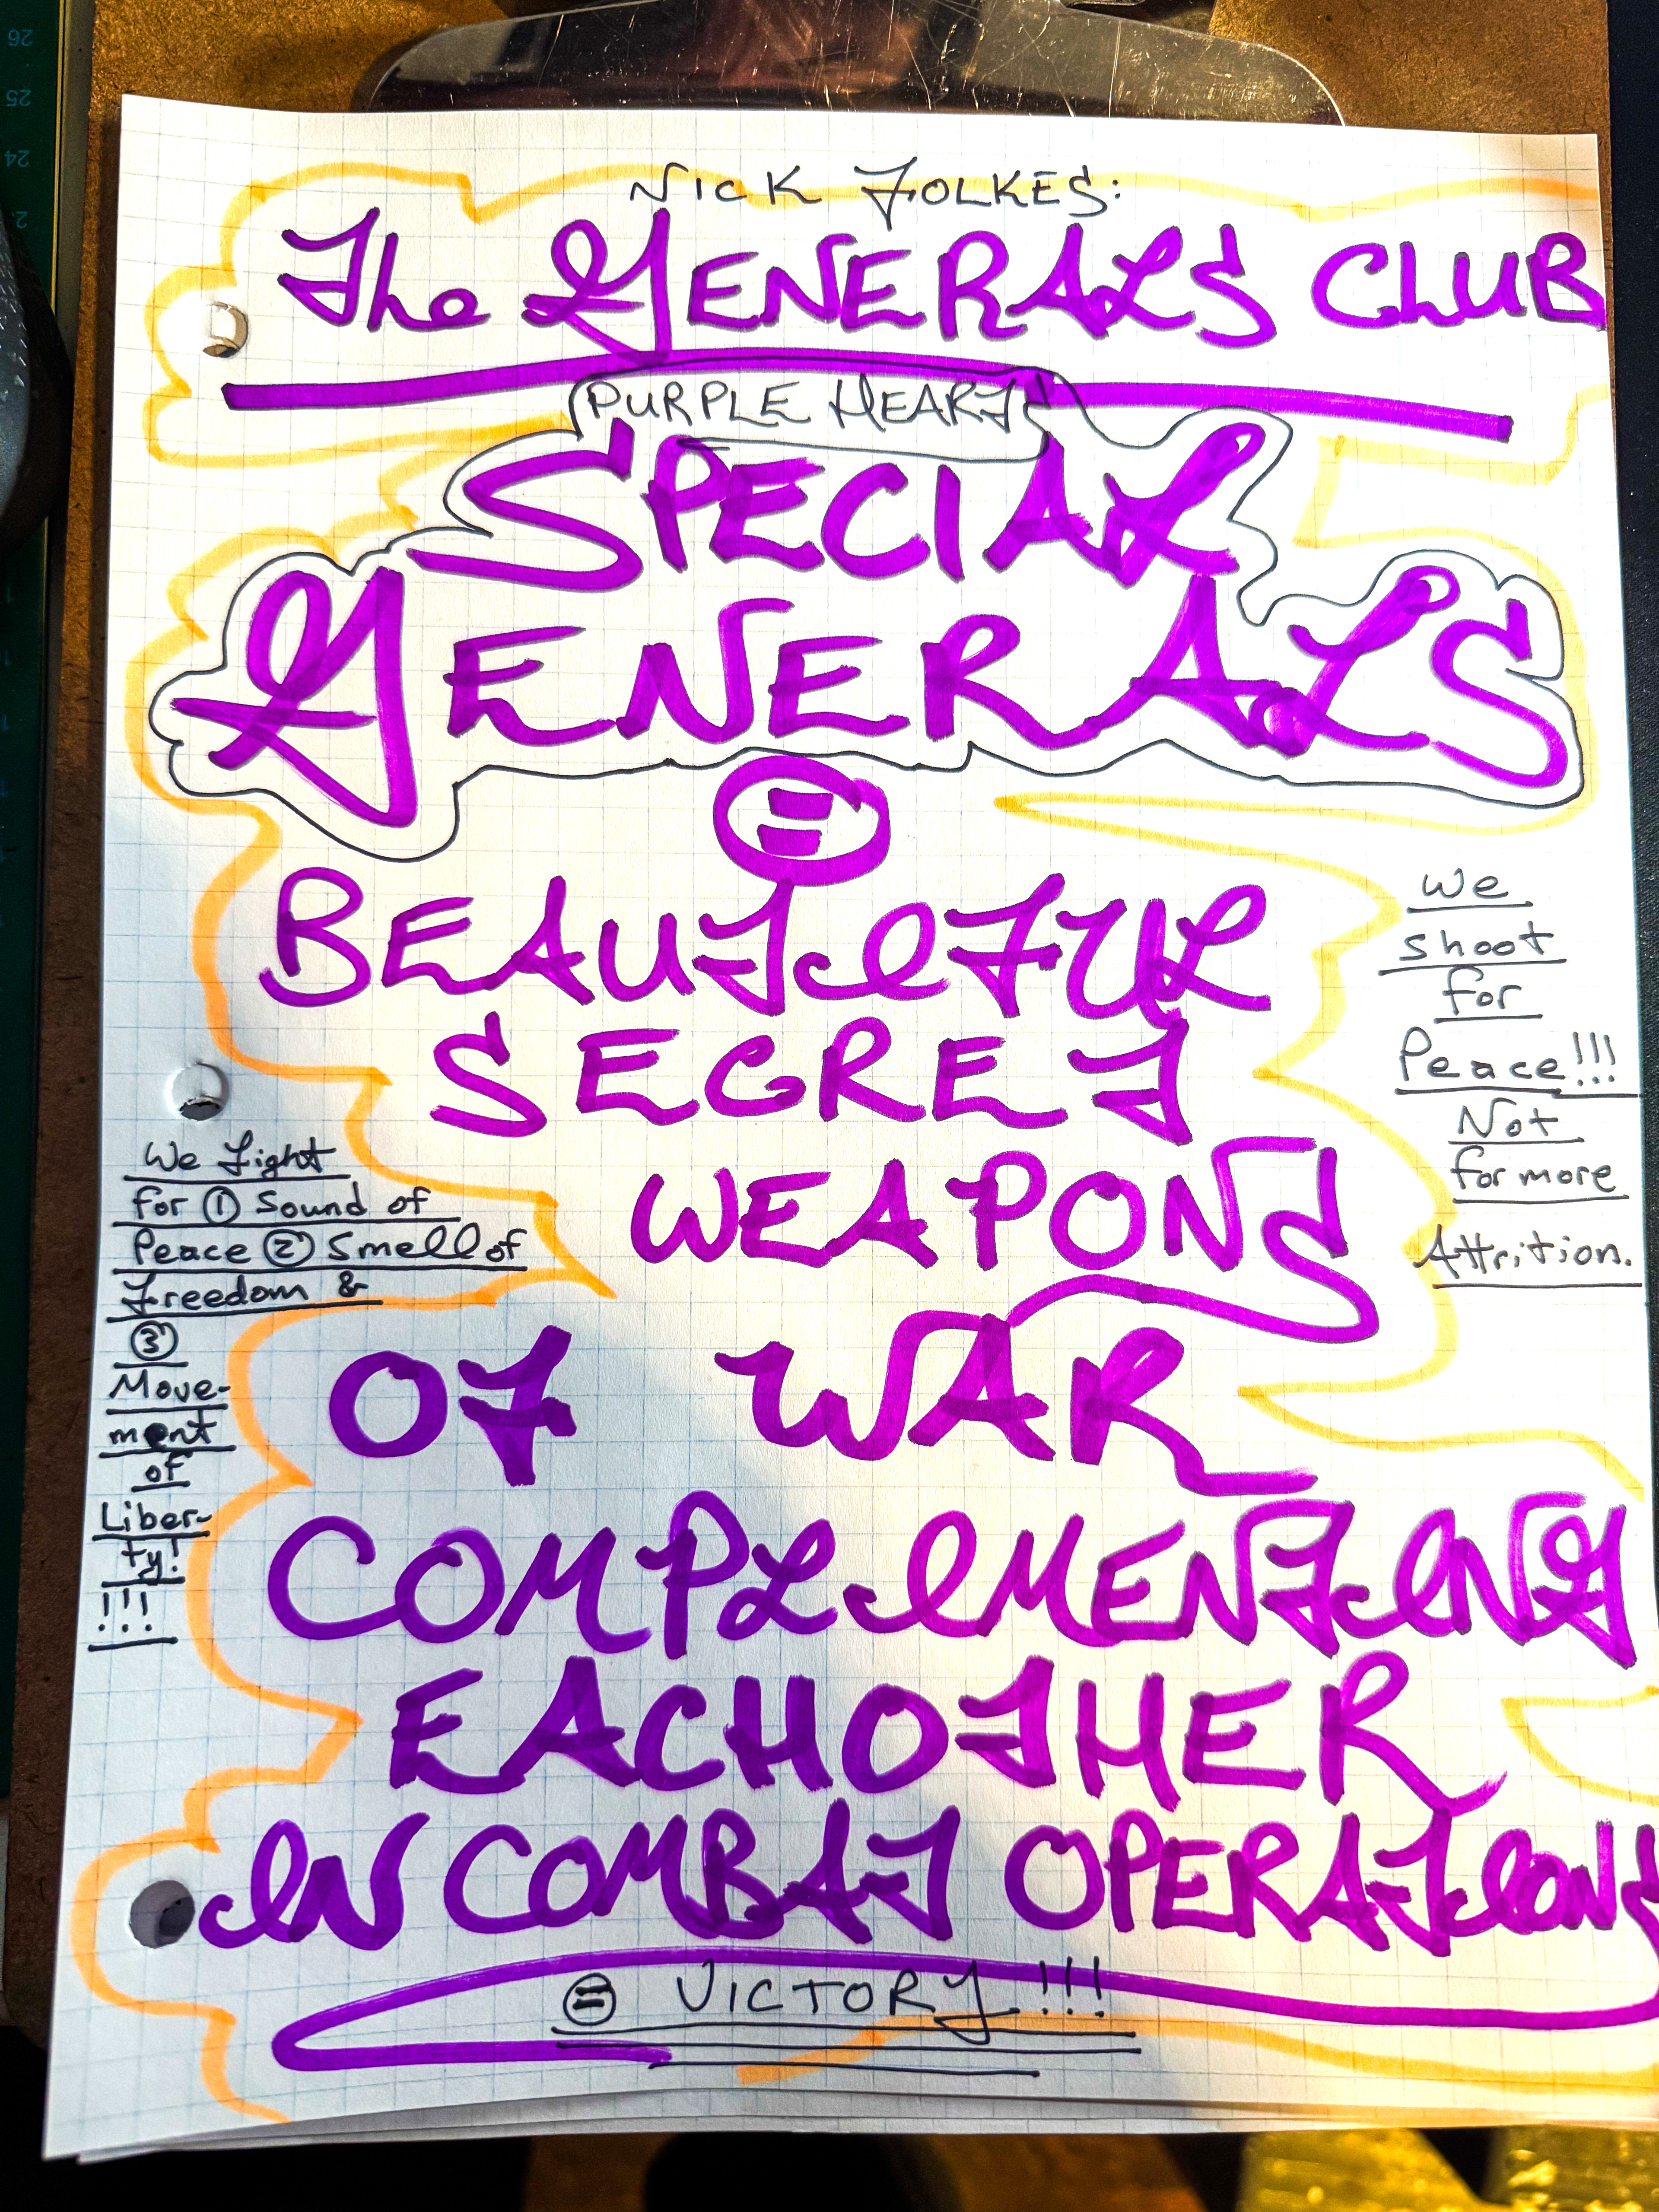 NICK FOLKES:
The GENERALS CLUB
PURPLE HEART
SPECIAL
GENERALS
=
BEAUTIFUL
SECRET
WEAPONS
OF WAR
COMPLIMENTING
EACHOTHER
IN COMBAT OPERATIONS
= VICTORY!!!
We
shoot
for
Peace!!!
Not
for more
Attrition.
We Fight
for ① Sound of
Peace ② Smell of
Freedom &
③
Move-
ment
of
Liber-
ty!
!!!